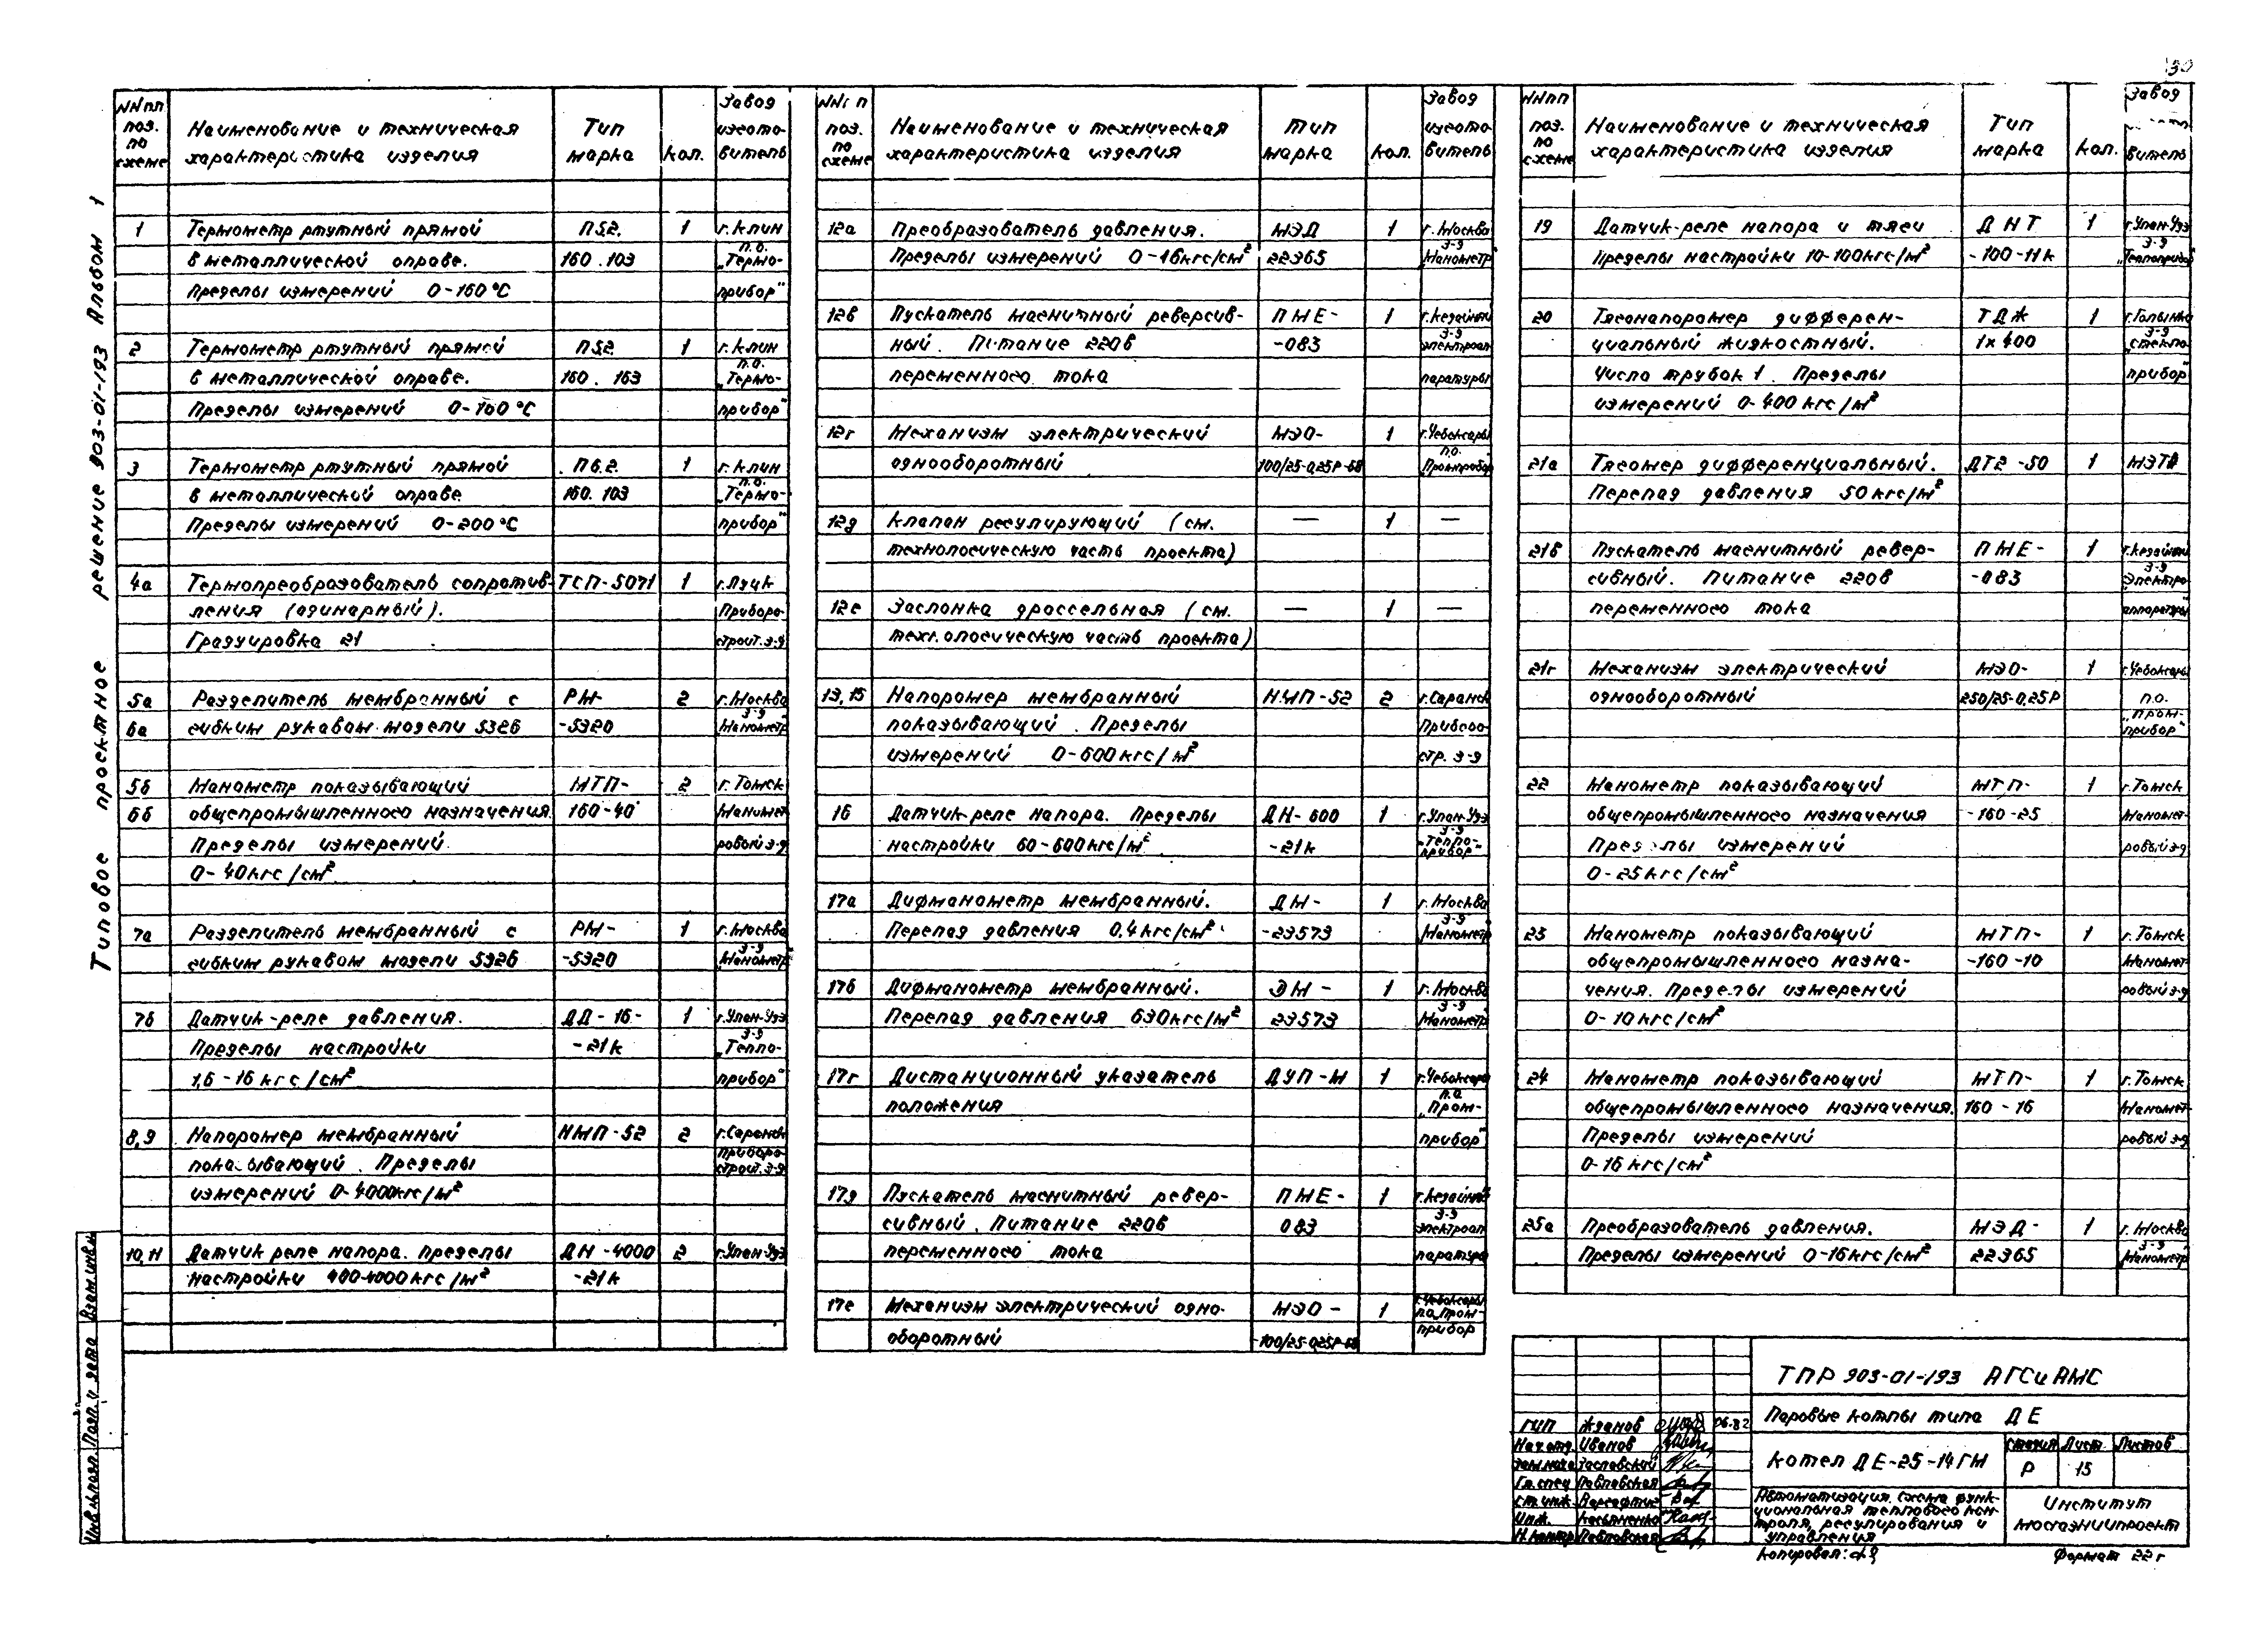 30
Типовое проектное решение 903-01-193 Альбом 1
NN пп поз. по схеме | Наименование и техническая характеристика изделия | Тип марка | Кол. | Завод изгото- витель
1 Термометр ртутный прямой П5.2. 1 г. Клин
в металлической оправе. 160.103 п.о. „Термо-
Пределы измерений 0-160°С прибор"
2 Термометр ртутный прямой П5.2. 1 г. Клин
в металлической оправе. 160. 163 п.о. „Термо-
Пределы измерений 0-160°С прибор"
3 Термометр ртутный прямой П6.2. 1 г. Клин
в металлической оправе п.о. 160. 103 „Термо-
Пределы измерений 0-200°С прибор"
4а Термопреобразователь сопротив- ТСП-5071 1 г. Луцк
ления (одинарный). Приборо-
Градуировка 21 строит. з-д
5а Разделитель мембранный с РМ- 2 г. Москва
6а гибким рукавом модели 5326 -5320 з-д „Манометр"
5б Манометр показывающий МТП- 2 г. Томск
6б общепромышленного назначения. 160-40 Маномет-
Пределы измерений. ровый з-д
0-40кгс/см²
7а Разделитель мембранный с РМ- 1 г. Москва
гибким рукавом модели 5326 -5320 з-д „Манометр"
7б Датчик-реле давления. ДД-16- 1 г. Улан-Удэ
Пределы настройки -21к з-д „Тепло-
1,6-16 кгс/см² прибор"
8,9 Напоромер мембранный НМП-52 2 г. Саранск
показывающий. Пределы приборо- строит. з-д
измерений 0-4000кгс/м²
10,11 Датчик реле напора. Пределы ДН-4000 2 г. Улан-Удэ
настройки 400-4000кгс/м² -21к
NN п поз. по схеме | Наименование и техническая характеристика изделия | Тип марка | Кол. | Завод изгото- витель
12а Преобразователь давления. МЭД 1 г. Москва
Пределы измерений 0-16кгс/см² 22365 з-д „Манометр"
12в Пускатель магнитный реверсив- ПМЕ- 1 г. Кедайняй
ный. Питание 220в -083 з-д электроап
переменного тока паратуры
12г Механизм электрический МЭО- 1 г. Чебоксары
однооборотный 100/25-0,25Р-68 п.о. „Промприбор
12д Клапан регулирующий (см. — 1 —
технологическую часть проекта)
12е Заслонка дроссельная (см. — 1 —
технологическую часть проекта)
13,15 Напоромер мембранный НМП-52 2 г. Саранск
показывающий. Пределы Приборо-
измерений 0-600кгс/м² стр. з-д
16 Датчик-реле напора. Пределы ДН-600 1 г. Улан-Удэ
настройки 60-600кгс/м² -21к з-д „Тепло- прибор"
17а Дифманометр мембранный. ДМ- 1 г. Москва
Перепад давления 0,4 кгс/см² -23573 з-д „Манометр"
17б Дифманометр мембранный. ДМ- 1 г. Москва
Перепад давления 630кгс/м² 23573 з-д „Манометр"
17г Дистанционный указатель ДУП-М 1 г. Чебоксары
положения п.о. „Пром-
прибор"
17д Пускатель магнитный ревер- ПМЕ- 1 г. Кедайняй
сивный. Питание 220в 083 з-д электроап
переменного тока паратуры
17е Механизм электрический одно- МЭО- 1 г. Чебоксары п.о. „Пром-
оборотный -100/25-0,25Р-68 прибор
NN пп поз. по схеме | Наименование и техническая характеристика изделия | Тип марка | Кол. | Завод витель
19 Датчик-реле напора и тяги ДНТ 1 г. Улан-Удэ
Пределы настройки 10-100кгс/м² -100-11к з-д „Теплоприбор"
20 Тягонапоромер дифферен- ТДЖ 1 г. Голынки
циальный жидкостный. 1х400 з-д „стекло-
Число трубок 1. Пределы прибор"
измерений 0-400 кгс/м²
21а Тягомер дифференциальный. ДТ2-50 1 МЗТА
Перепад давления 50 кгс/м²
21в Пускатель магнитный ревер- ПМЕ- 1 г. Кедайняй
сивный. Питание 220в -083 з-д „Электро-
переменного тока аппаратуры"
21г Механизм электрический МЭО- 1 г. Чебоксары
однооборотный 250/25-0,25Р п.о.
„Пром- прибор"
22 Манометр показывающий МТП- 1 г. Томск
общепромышленного назначения -160-25 Маномет-
Пределы измерений ровый з-д
0-25кгс/см²
23 Манометр показывающий МТП- 1 г. Томск
общепромышленного назна- -160-10 Маномет-
чения. Пределы измерений ровый з-д
0-10кгс/см²
24 Манометр показывающий МТП- 1 г. Томск
общепромышленного назначения. 160-16 Маномет-
Пределы измерений ровый з-д
0-16 кгс/см²
25а Преобразователь давления. МЭД- 1 г. Москва
Пределы измерений 0-16кгс/см² 22365 з-д „Манометр"
ТПР 903-01-193 АГСиАМС
Паровые котлы типа ДЕ
Котел ДЕ-25-14ГМ
Стадия Лист Листов
Р 15
Автоматизация. Схема функ-
циональная теплового кон-
троля, регулирования и
управления
Институт
Мосгазниипроект
ГИП Жданов 06.82
Нач.отд. Иванов
Зам.нача Заславский
Гл.спец Павловская
Ст.инж.
Инж. Касьяненко
Н.контр Павловская
Копировал:
Формат 22г
Инв.N подл. Подп. и дата Взам.инв.N